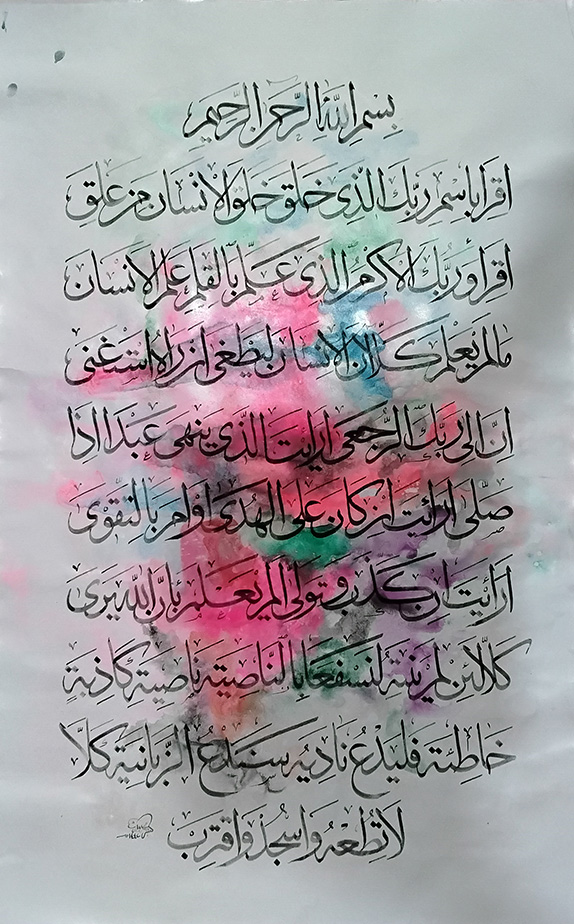 بِسْمِ اللهِ الرَّحمنِ الرَّحيمِ
اقرَا بِاسْمِ رَبِّكَ الَّذى خَلَقَ خَلَقَ الاِنْسَانَ مِنْ عَلَقٍ
اقرَأ وَ رَبُّكَ الاَكْرَمُ الَّذِى عَلَّمَ بِالْقَلَمِ عَلَّمَ الاِنْسَان
مَا لَمْ يَعْلَمْ كَلّا اِنَّ الاِنْسَانَ لَيَطْغى اَنْ رَاهُ اسْتَغْنى
اِنَّ اِلى رَبِّكَ الرُّجْعى اَرَاَيْتَ الَّذى يَنْهى عَبْدًا اِذَا
صَلّى اَرَائَيْتَ اِنْ كَانَ عَلَى الْهُدى اَوْ اَمَرَ بِالتَّقْوى
اَرَائَيْتَ اِنْ كَذَّبَ وَتَوَلّى اَلَمْ يَعْلَمْ بِاَنَّ اللهَ يَرى
كَلّا لَئِنْ لَمْ يَنْتَهِ لَنَسْفَعًا بِالنَّاصِيَةِ نَاصِيَةٍ كَاذِبَةٍ
خَاطِئَةٍ فَلْيَدْعُ نَادِيَه سَنَدْعُ الزَّبَانِيَةَ كَلّا
لَا تُطِعْهُ وَاسْجُدْ وَاقْتَرِبْ